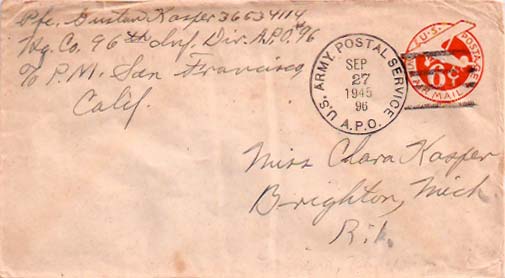 Pfc. Gustav Kasper 36634114
Hq. Co. 96th Inf. Div. A.P.O. 96
c/o P.M. San Francisco
Calif.
U.S. ARMY POSTAL SERVICE
SEP
27
1945
96
A.P.O.
U.S. POSTAGE
6¢
VIA AIR MAIL
Miss Clara Kasper
Brighton, Mich.
R.1.